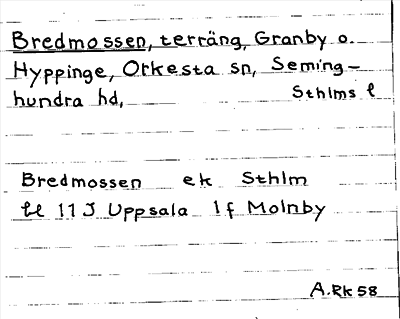 Bredmossen, terräng, Granby o.
Hyppinge, Orkesta sn, Seming-
hundra hd, Sthlms l
Bredmossen ek Sthlm
bl 11 J Uppsala 1 f Molnby
A.Rk 58